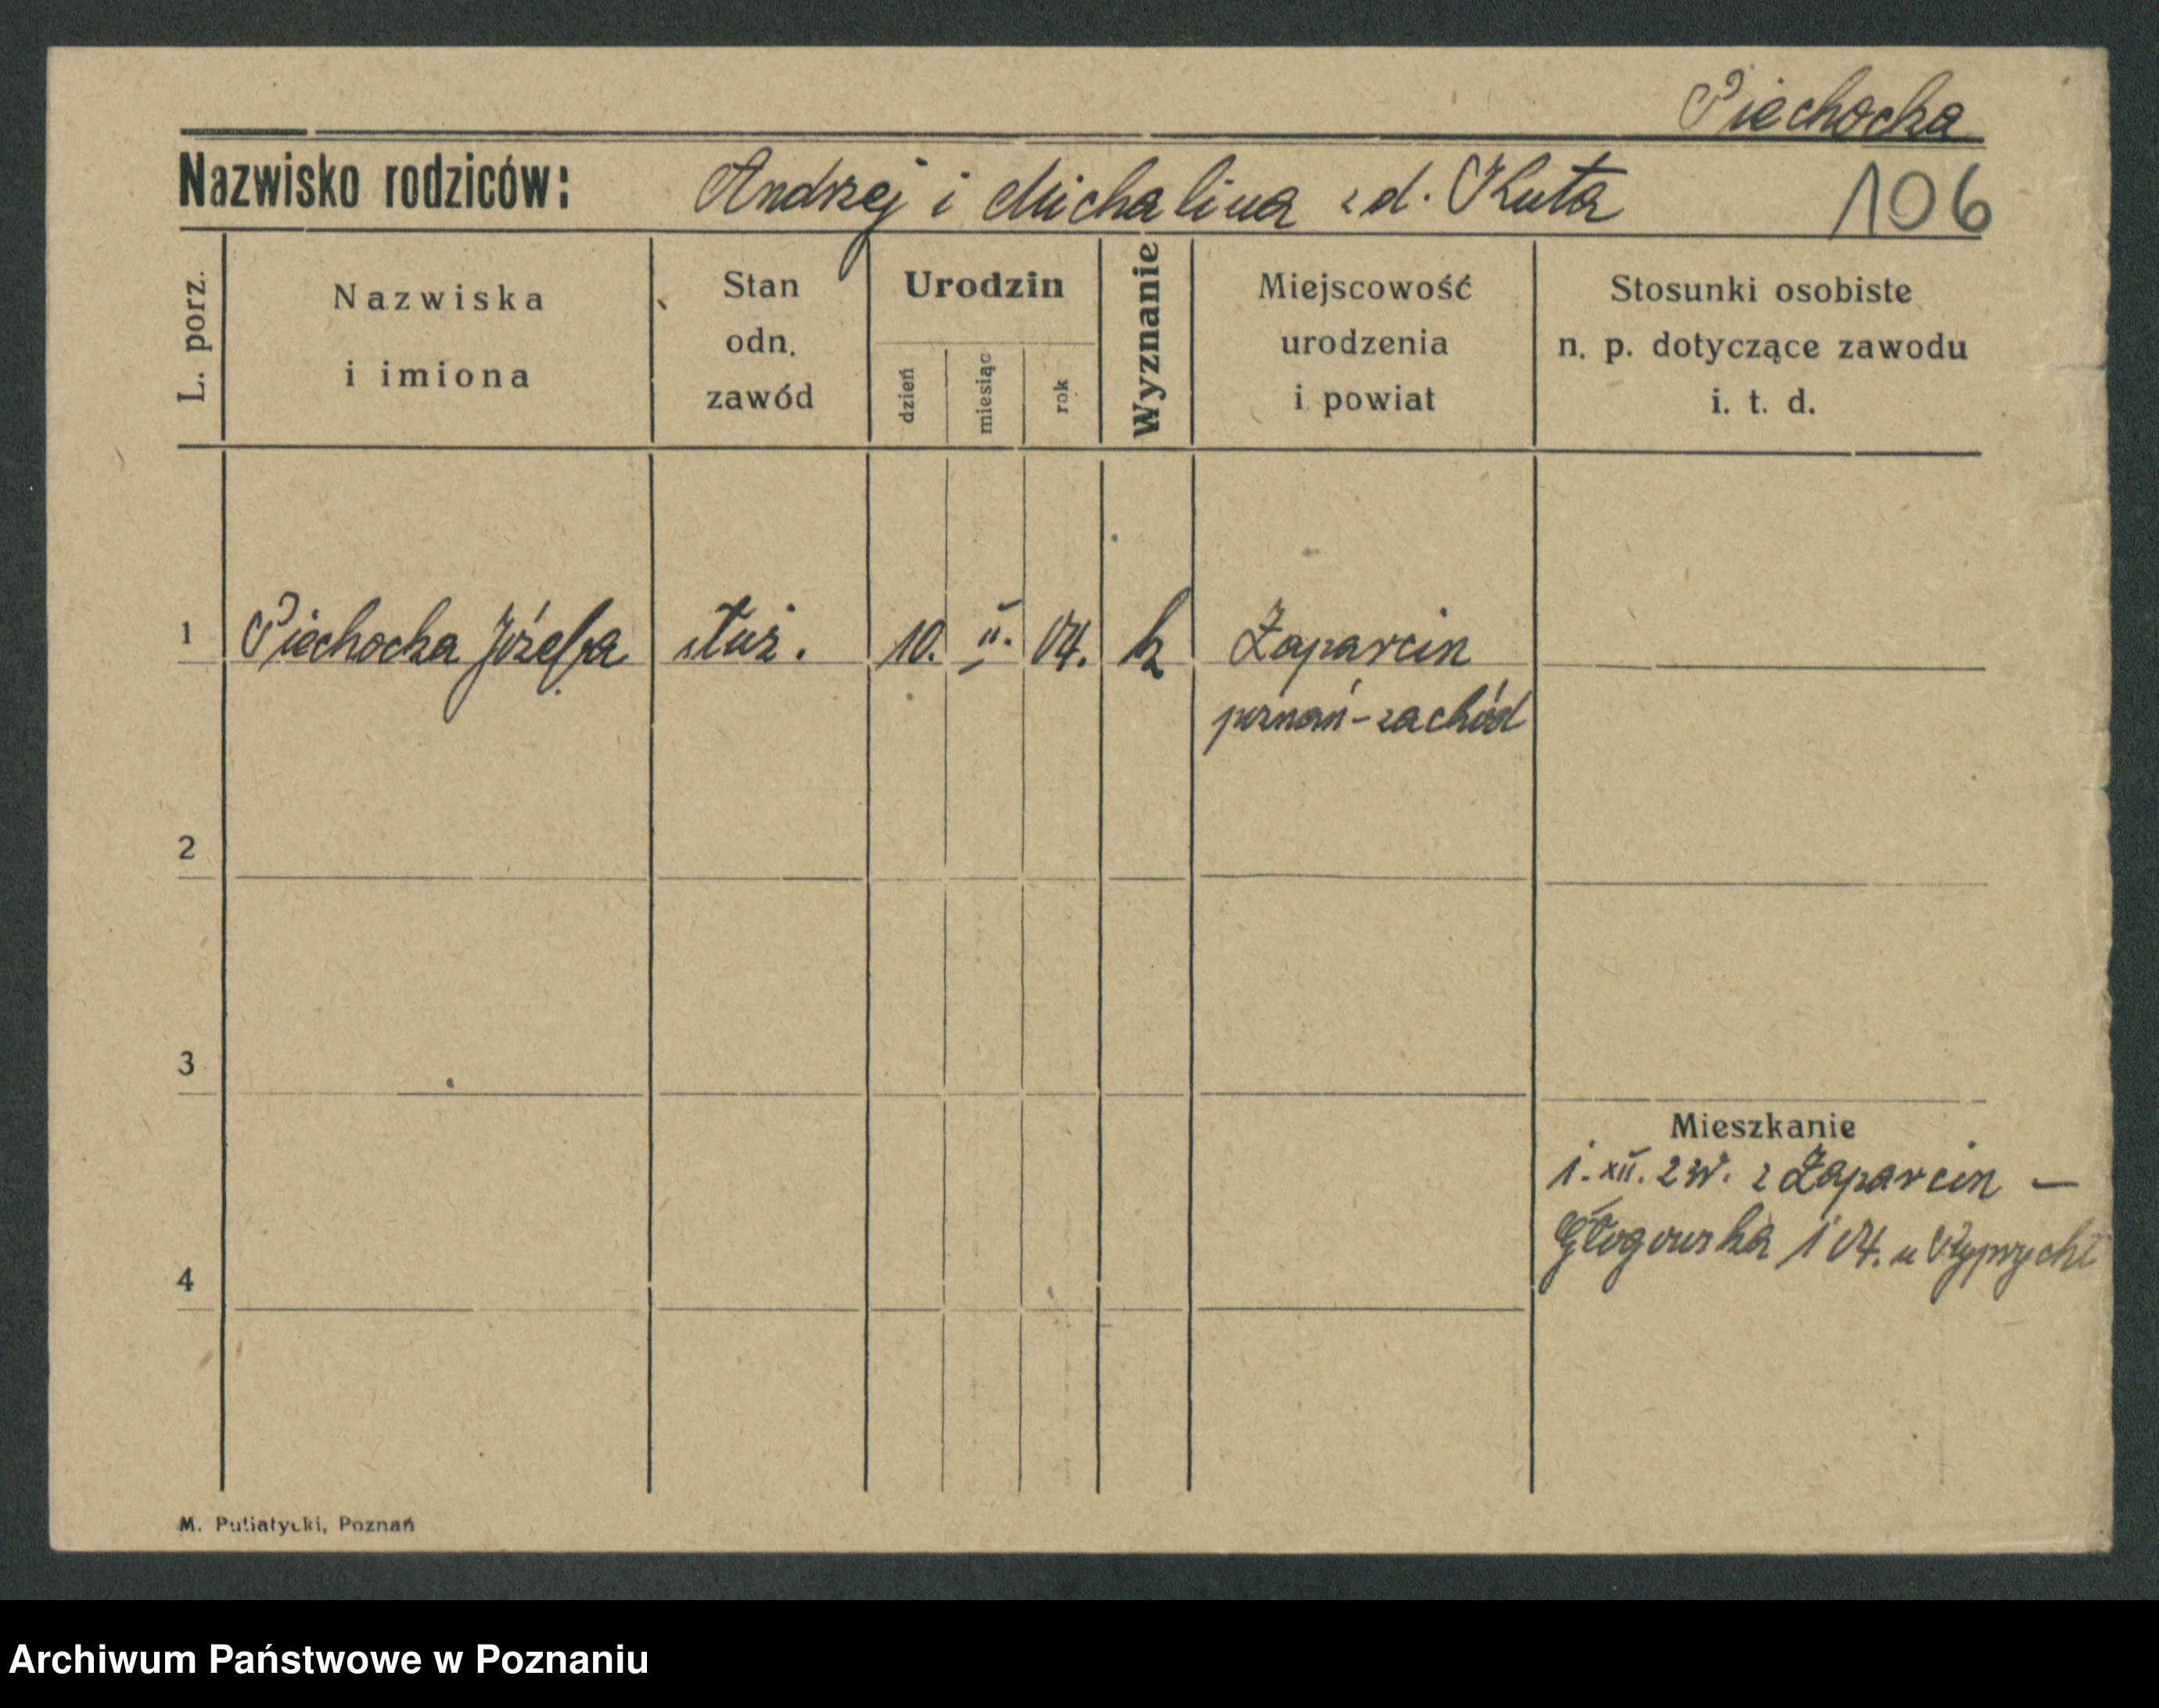 Piechocka
Nazwisko rodziców: Andrzej i Michalina z d. Kuta 106
L. porz.
Nazwiska
i imiona
Stan
odn.
zawód
Urodzin
dzień
miesiąc
rok
Wyznanie
Miejscowość
urodzenia
i powiat
Stosunki osobiste
n. p. dotyczące zawodu
i. t. d.
1 Piechocka Józefa służ. 10. II. 04. k Zaparcin
poznań-zachód
2
3
Mieszkanie
1. XII. z Zaparcin —
Głogowska 104. u
4
M. Putiatycki, Poznań
Archiwum Państwowe w Poznaniu